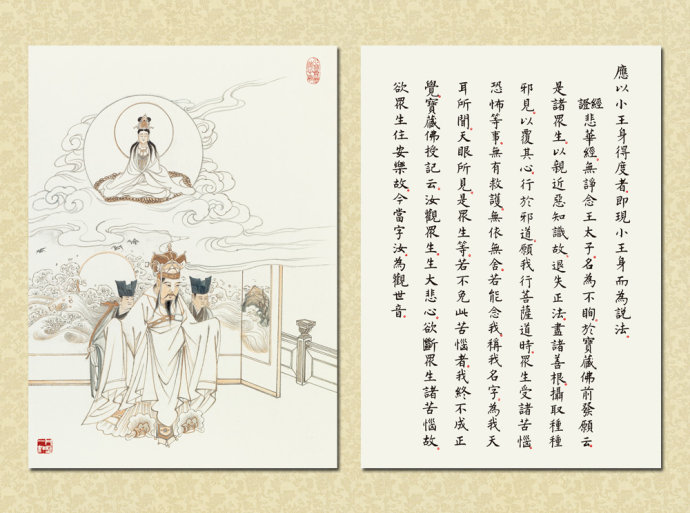 應以小王身得度者即現小王身而為說法。
證經 悲華經。無諍念王太子。名為不眴。於寶藏佛前發願云。
是諸眾生。以親近惡知識故。退失正法。盡諸善根。攝取種種
邪見。以覆其心。行於邪道。願我行菩薩道時。眾生受諸苦惱。
恐怖等事。無有救護。無依無舍。若能念我。稱我名字。為我天
耳所聞。天眼所見。是眾生等。若不免此苦惱者。我終不成正
覺。寶藏佛授記云。汝觀眾生。生大悲心。欲斷眾生諸苦惱故。
欲眾生住安樂故。今當字汝。為觀世音。